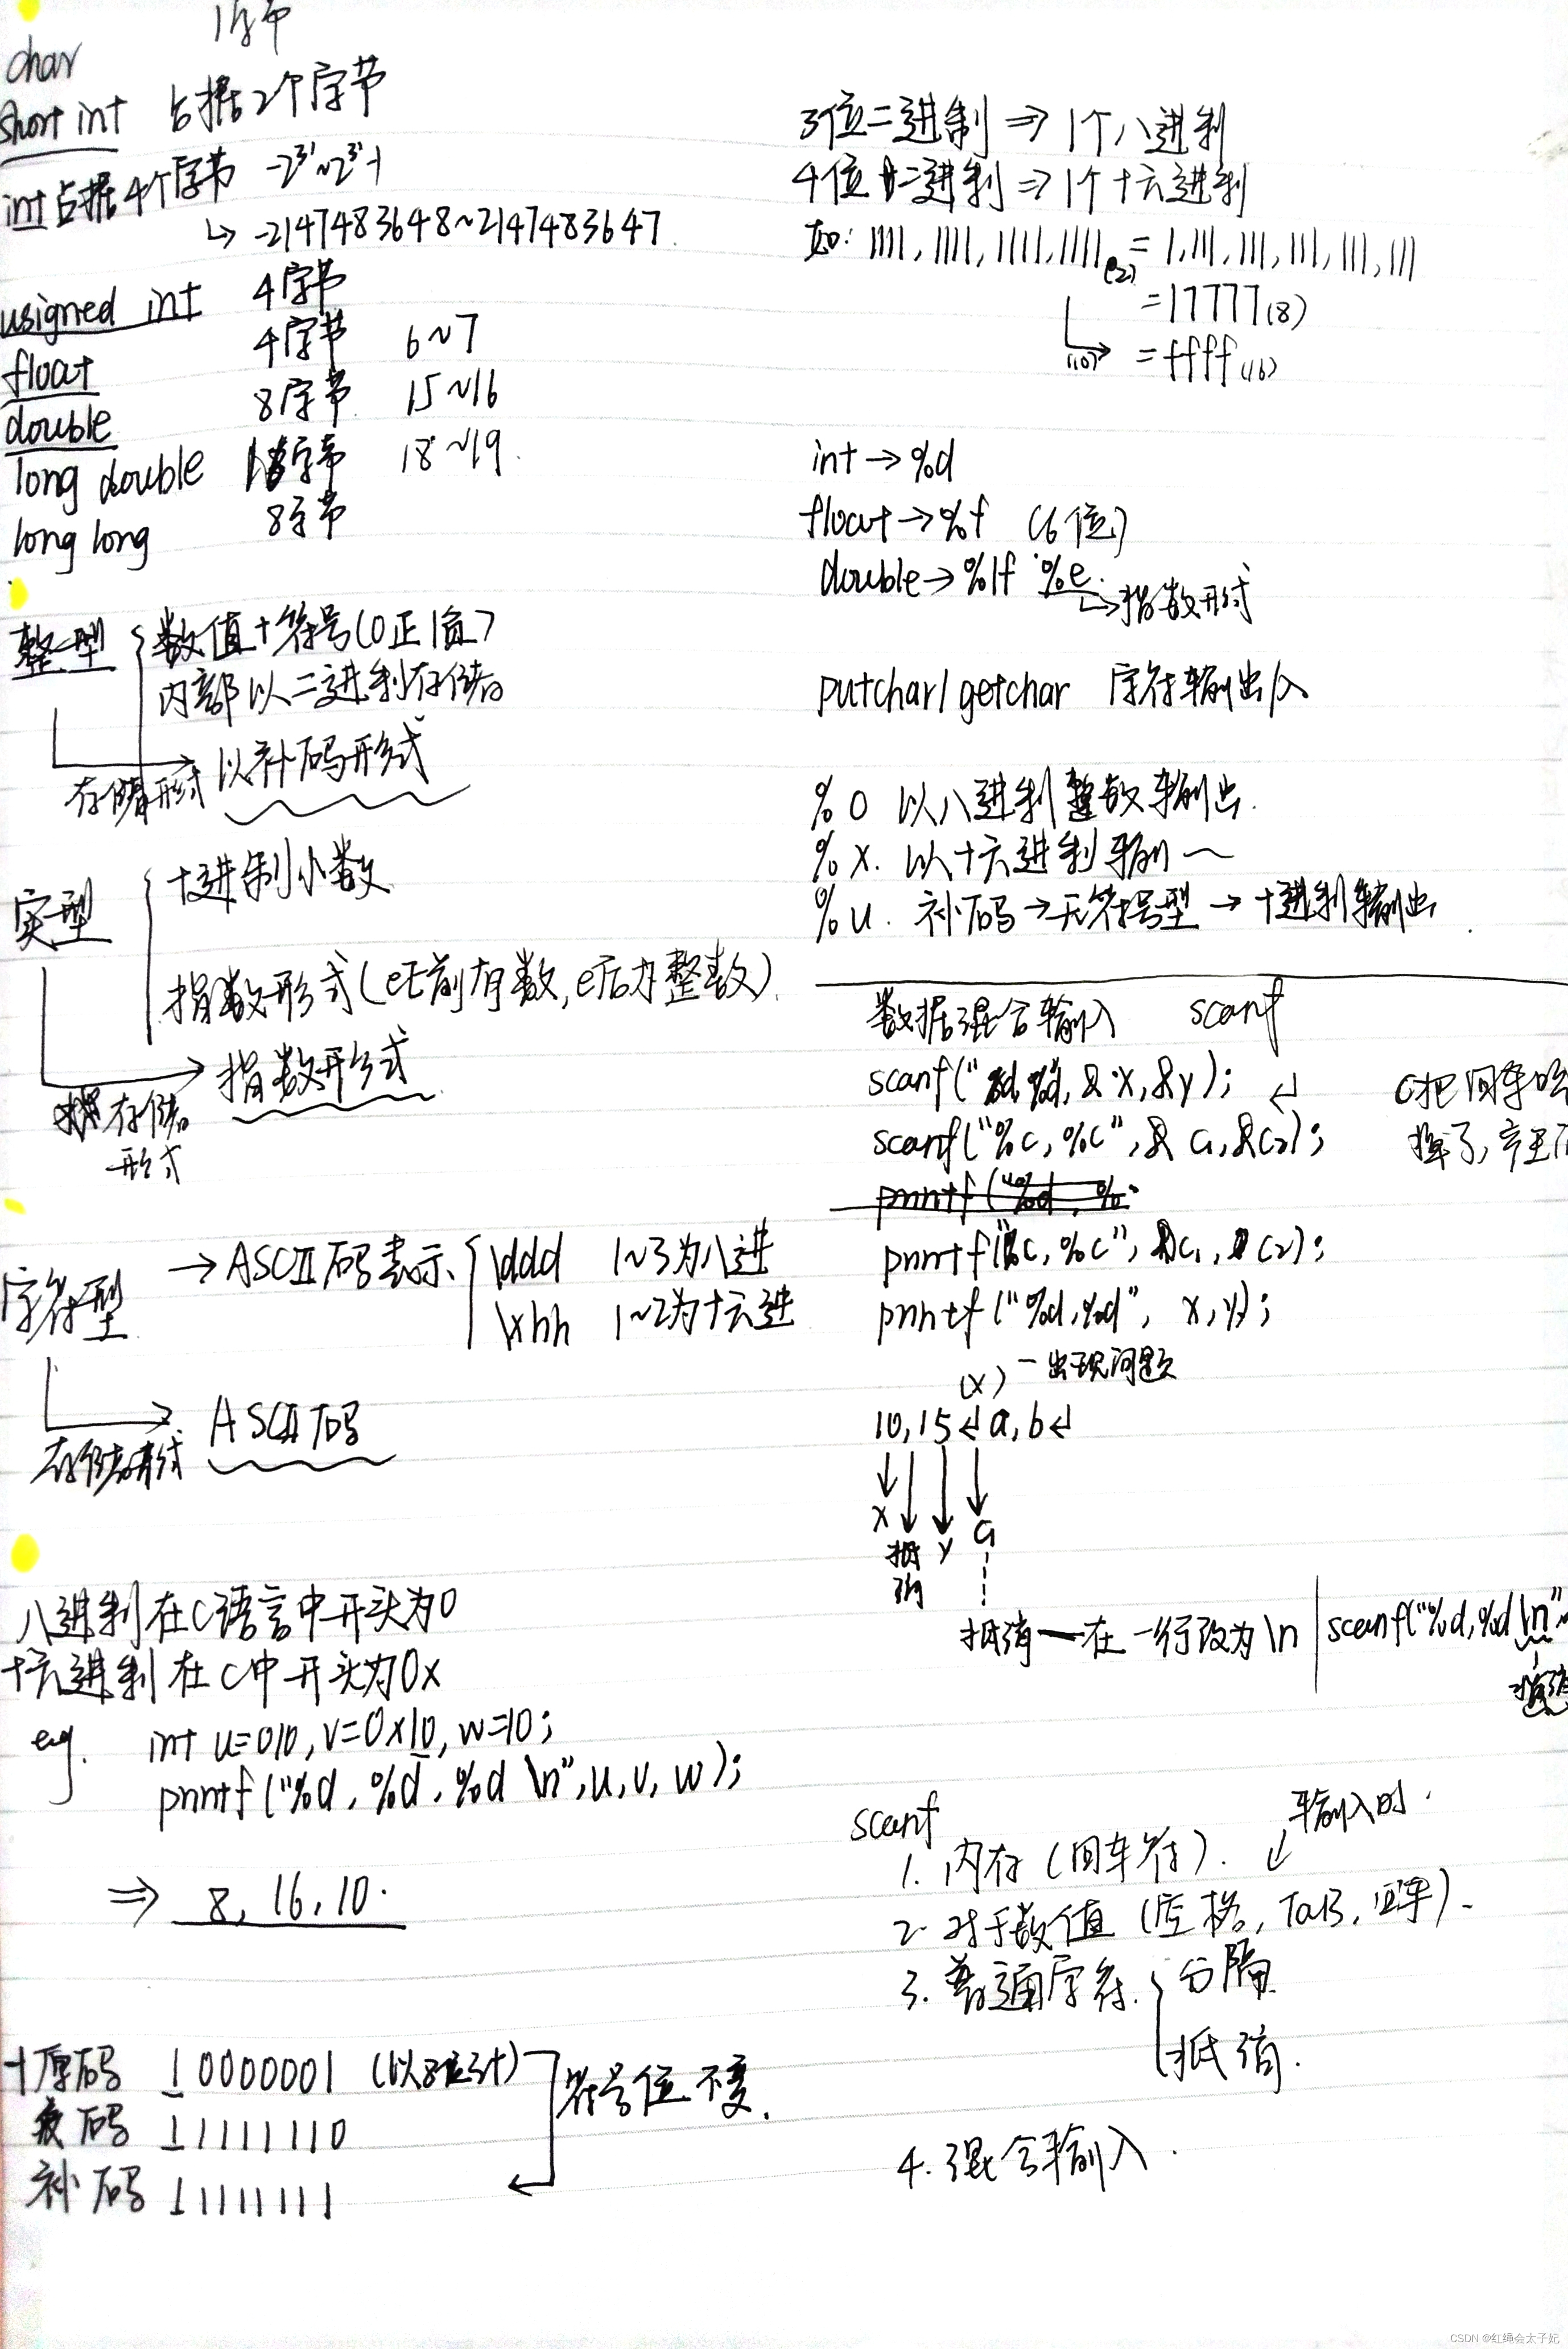 char 1字节
short int 占据2个字节
int占据4个字节 -2³¹~2³¹-1
↳ -2147483648~2147483647
usigned int 4字节
float 4字节 6~7
double 8字节 15~16
long double 字节 18~19
long long 8字节
整型 { 数值+符号(0正1负)
内部以二进制存储
存储形式 以补码形式
实型 { 十进制小数
指数形式(e前有数,e后为整数)
存储形式 → 指数形式
字符型 → ASCII码表示 { \ddd 1~3为八进
\xhh 1~2为十六进
存储形式 → ASCII码
八进制在C语言中开头为0
十六进制在C中开头为0x
eg. int u=010, v=0x10, w=10;
printf("%d, %d, %d \n", u, v, w);
⇒ 8, 16, 10.
-1原码 10000001 (以8位计)
反码 11111110 符号位不变.
补码 11111111
3位二进制 ⇒ 1个八进制
4位二进制 ⇒ 1个十六进制
如: 1111,1111,1111,1111(2) = 1,111,111,111,111,111
=17777(8)
(10) =ffff(16)
int → %d
float → %f (6位)
double → %lf %e
↳指数形式
putchar/getchar 字符输出/入
%o 以八进制整数输出.
%x. 以十六进制输~
%u. 补码→无符号型→十进制输出
数据混合输入 scanf
scanf("%d,%d, &x,&y); ↲ C把回车
scanf("%c,%c",& c₁,&c₂); 掉了,
printf("%d, %
printf("%c,%c", c₁, c₂);
printf("%d,%d", x,y);
(x) -出现问题
10,15↲a,b↲
x 抵消 y c₁
抵消—在一行改为\n scanf("%d,%d\n"
抵消
scanf
输入时.
1. 内存(回车符).
2. 对于数值(空格, TaB, 回车).
3. 普通字符. { 分隔
抵消.
4. 混合输入.
CSDN @红绳会太子妃